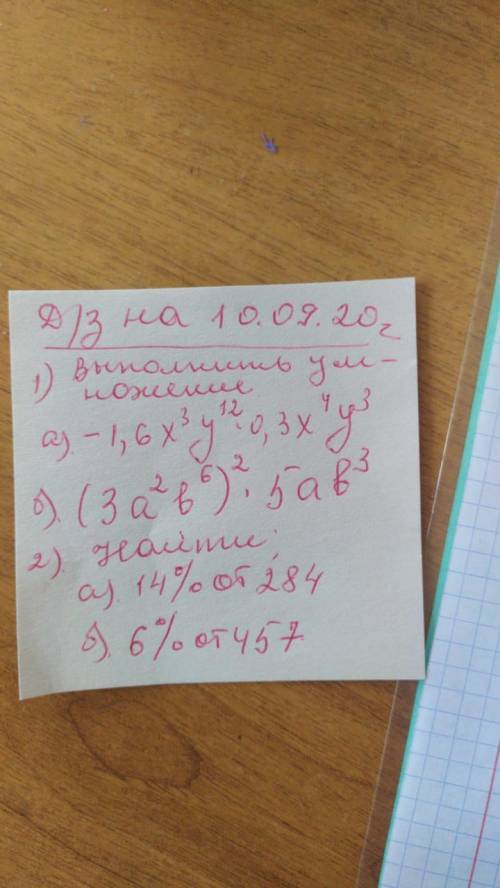 Д/З на 10.09.20г
1) Выполнить ум-
ножение
а). -1,6x³y¹²·0,3x⁴y³
б). (3a²b⁶)²·5ab³
2). Найти:
а). 14% от 284
б). 6% от 457